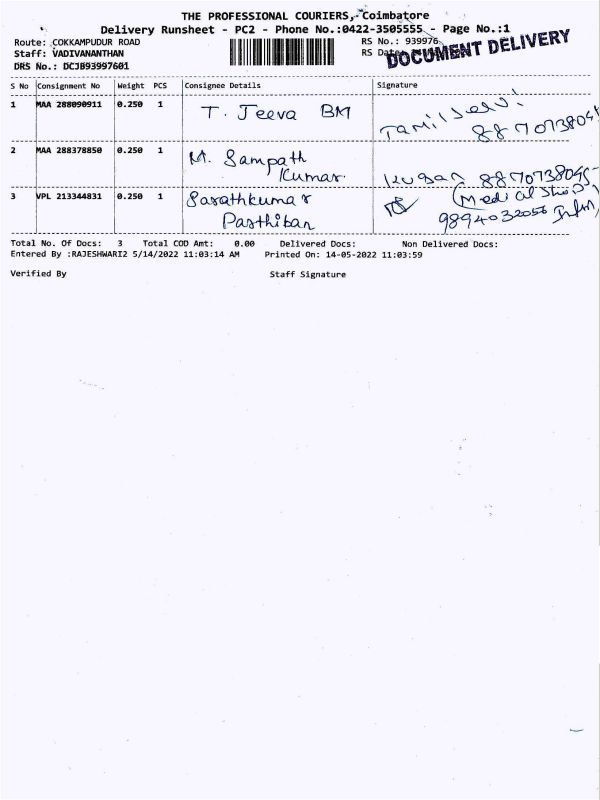 THE PROFESSIONAL COURIERS, Coimbatore
Delivery Runsheet - PC2 - Phone No.:0422-3505555 - Page No.:1
Route: COKKAMPUDUR ROAD
Staff: VADIVANANTHAN
DRS No.: DCJB93997601
RS No.: 939976
RS Date
DOCUMENT DELIVERY
S No Consignment No Weight PCS Consignee Details Signature
1 MAA 288090911 0.250 1 T. Jeeva BM Tamil Selvi
887073804
2 MAA 288378850 0.250 1 M. Sampath
Kumar. Kugan 8870738045
3 VPL 213344831 0.250 1 Sarathkumar (Medical Shop)
Parthiban 9894032056
Total No. Of Docs: 3 Total COD Amt: 0.00 Delivered Docs: Non Delivered Docs:
Entered By :RAJESHWARI2 5/14/2022 11:03:14 AM Printed On: 14-05-2022 11:03:59
Verified By Staff Signature